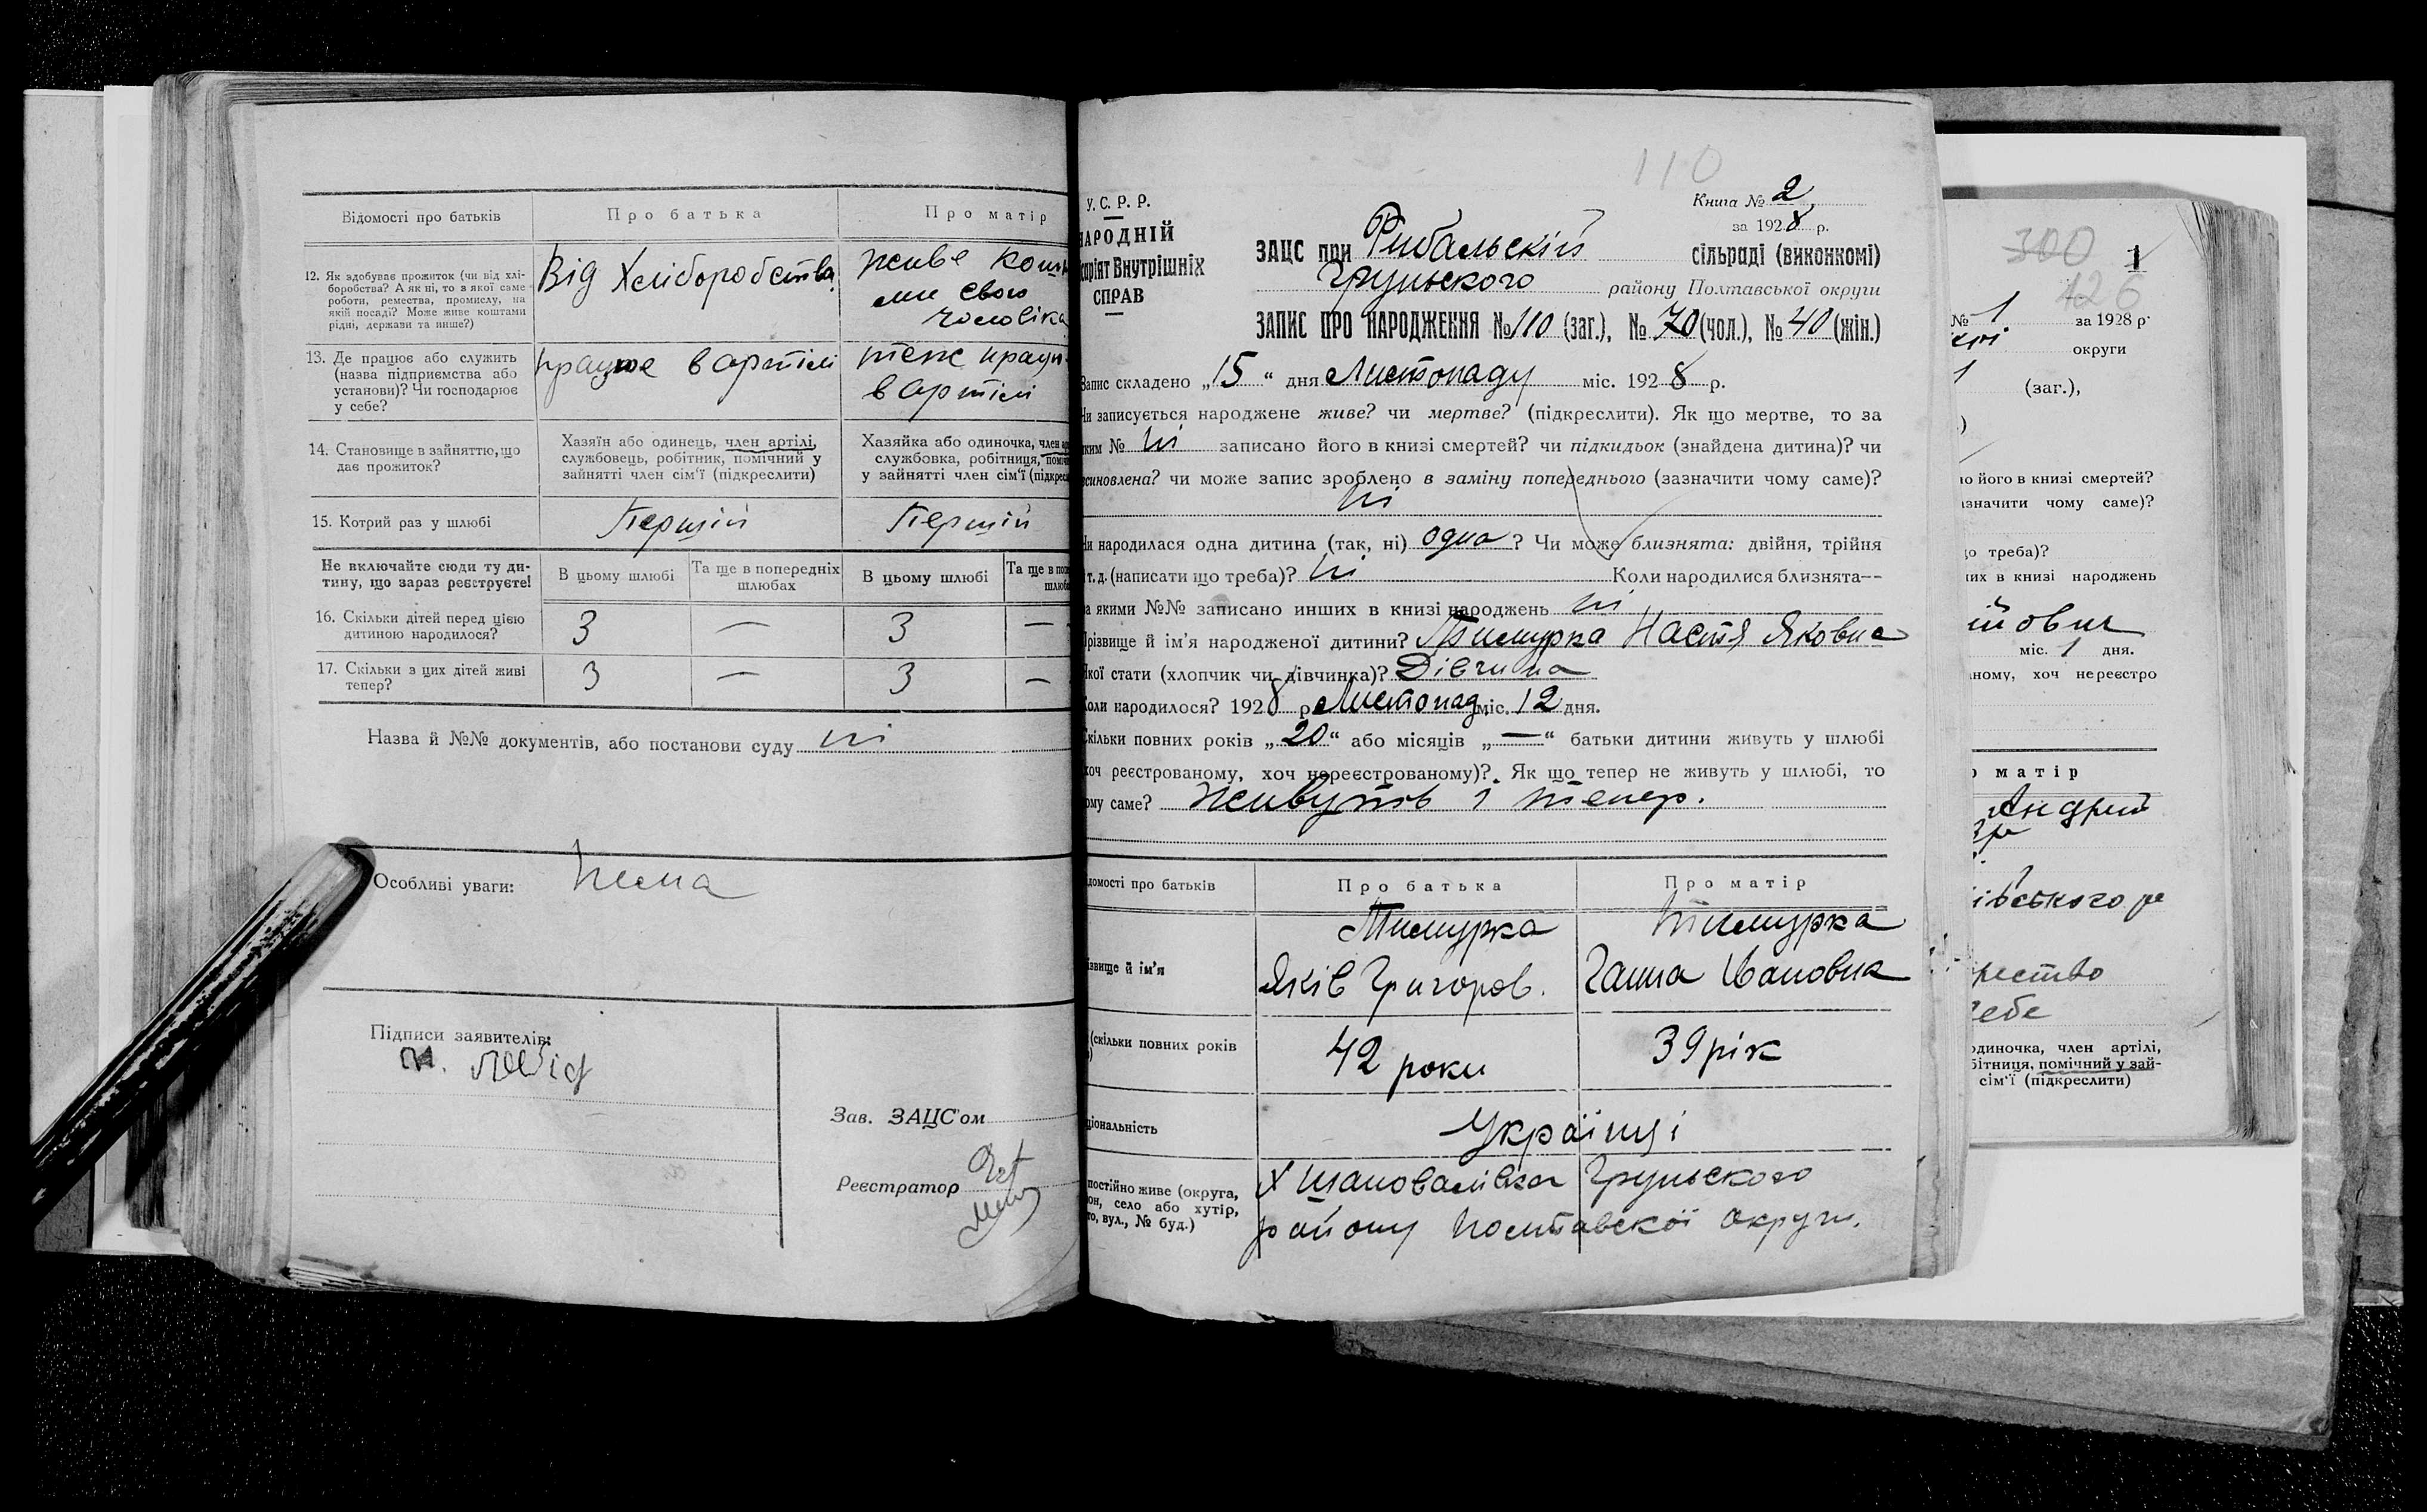 Відомості про батьків
Про батька
Про матір
12. Як здобуває прожиток (чи від хлі-
боробства? А як ні, то з якої саме
роботи, ремества, промислу, на
якій посаді? Може живе коштами
рідні, держави та инше?)
Від Хліборобства
живе кошт
ми свого
чоловіка
13. Де працює або служить
(назва підприємства або
установи)? Чи господарює
у себе?
працює в артілі
теж працю
в артілі
14. Становище в зайняттю, що
дає прожиток?
Хазяїн або одинець, член артілі,
службовець, робітник, помічний у
зайнятті член сім'ї (підкреслити)
Хазяйка або одиночка, член ар
службовка, робітниця, поміч
у зайнятті член сім'ї (підкрес
15. Котрий раз у шлюбі
Перший
Перший
Не включайте сюди ту ди-
тину, що зараз реєструєте!
В цьому шлюбі
Та ще в попередніх
шлюбах
В цьому шлюбі
Та ще в поп
шлюб
16. Скільки дітей перед цією
дитиною народилося?
3 — 3 —
17. Скільки з цих дітей живі
тепер?
3 — 3 —
Назва й №№ документів, або постанови суду ні
Особливі уваги: Нема
Підписи заявителів:
Зав. ЗАЦС'ом
Реєстратор
110
У. С. Р. Р.
НАРОДНІЙ
саріят Внутрішніх
СПРАВ
Книга № 2
за 1928 р.
ЗАЦС при Рибальскій сільраді (виконкомі)
Груньского району Полтавської округи
ЗАПИС ПРО НАРОДЖЕННЯ № 110 (заг.), № 70 (чол.), № 40 (жін.)
Запис складено „15“ дня Листопаду міс. 1928 р.
Чи записується народжене живе? чи мертве? (підкреслити). Як що мертве, то за
яким № ні записано його в книзі смертей? чи підкидьок (знайдена дитина)? чи
усиновлена? чи може запис зроблено в заміну попереднього (зазначити чому саме)?
ні
Чи народилася одна дитина (так, ні) одна? Чи може близнята: двійня, трійня
і т. д. (написати що треба)? ні Коли народилися близнята—
за якими №№ записано инших в книзі народжень ні
Прізвище й ім'я народженої дитини? Тимурка Настя Яковна
Якої стати (хлопчик чи дівчинка)? Дівчина
Коли народилося? 1928 р Листопад міс. 12 дня.
Скільки повних років „20“ або місяців „—“ батьки дитини живуть у шлюбі
хоч реєстрованому, хоч нереєстрованому)? Як що тепер не живуть у шлюбі, то
чому саме? живуть і тепер.
ідомості про батьків
Про батька
Про матір
ізвище й ім'я
Тимурка
Яків Григоров.
Тимурка
Ганна Івановна
(скільки повних років
42 роки
39 рік
ціональність
Українці
постійно живе (округа,
он, село або хутір,
то, вул., № буд.)
х Шаповалівка Груньского
району Полтавскої округи.
300
1
126
№ 1 за 1928 р.
округи
1 (заг.),
о його в книзі смертей?
азначити чому саме)?
що треба)?
их в книзі народжень
міс. 1 дня.
ному, хоч нереєстро
о матір
Андрий
ребе
одиночка, член артілі,
бітниця, помічний у зай-
сім'ї (підкреслити)